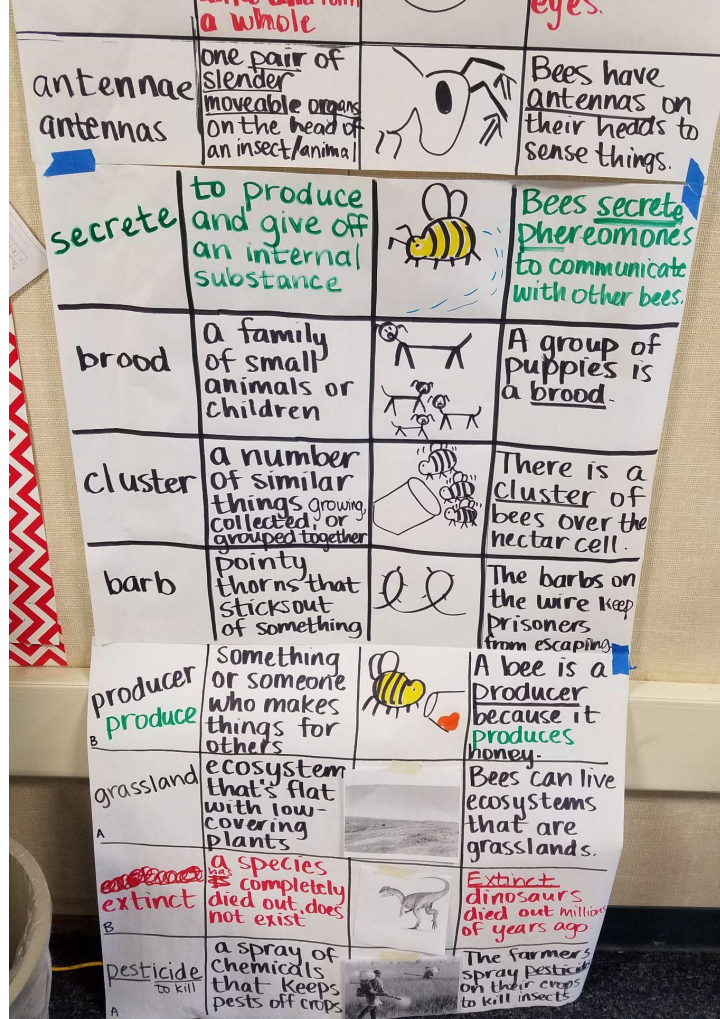 a whole
eyes.
antennae
antennas
one pair of
slender
moveable organs
on the head of
an insect/animal
Bees have
antennas on
their heads to
sense things.
secrete
to produce
and give off
an internal
substance
Bees secrete
phereomones
to communicate
with other bees.
brood
a family
of small
animals or
children
A group of
puppies is
a brood.
cluster
a number
of similar
things growing,
collected, or
grouped together
There is a
cluster of
bees over the
nectar cell.
barb
pointy
thorns that
sticks out
of something
The barbs on
the wire keep
prisoners
from escaping.
producer
produce
B
something
or someone
who makes
things for
others
A bee is a
producer
because it
produces
honey.
grassland
A
ecosystem
that's flat
with low-
covering
plants
Bees can live
ecosystems
that are
grasslands.
extinct
B
a species
has completely
died out. does
not exist
Extinct
dinosaurs
died out millions
of years ago
pesticide
to kill
A
a spray of
chemicals
that keeps
pests off crops
The farmers
spray pestici
on their crops
to kill insects